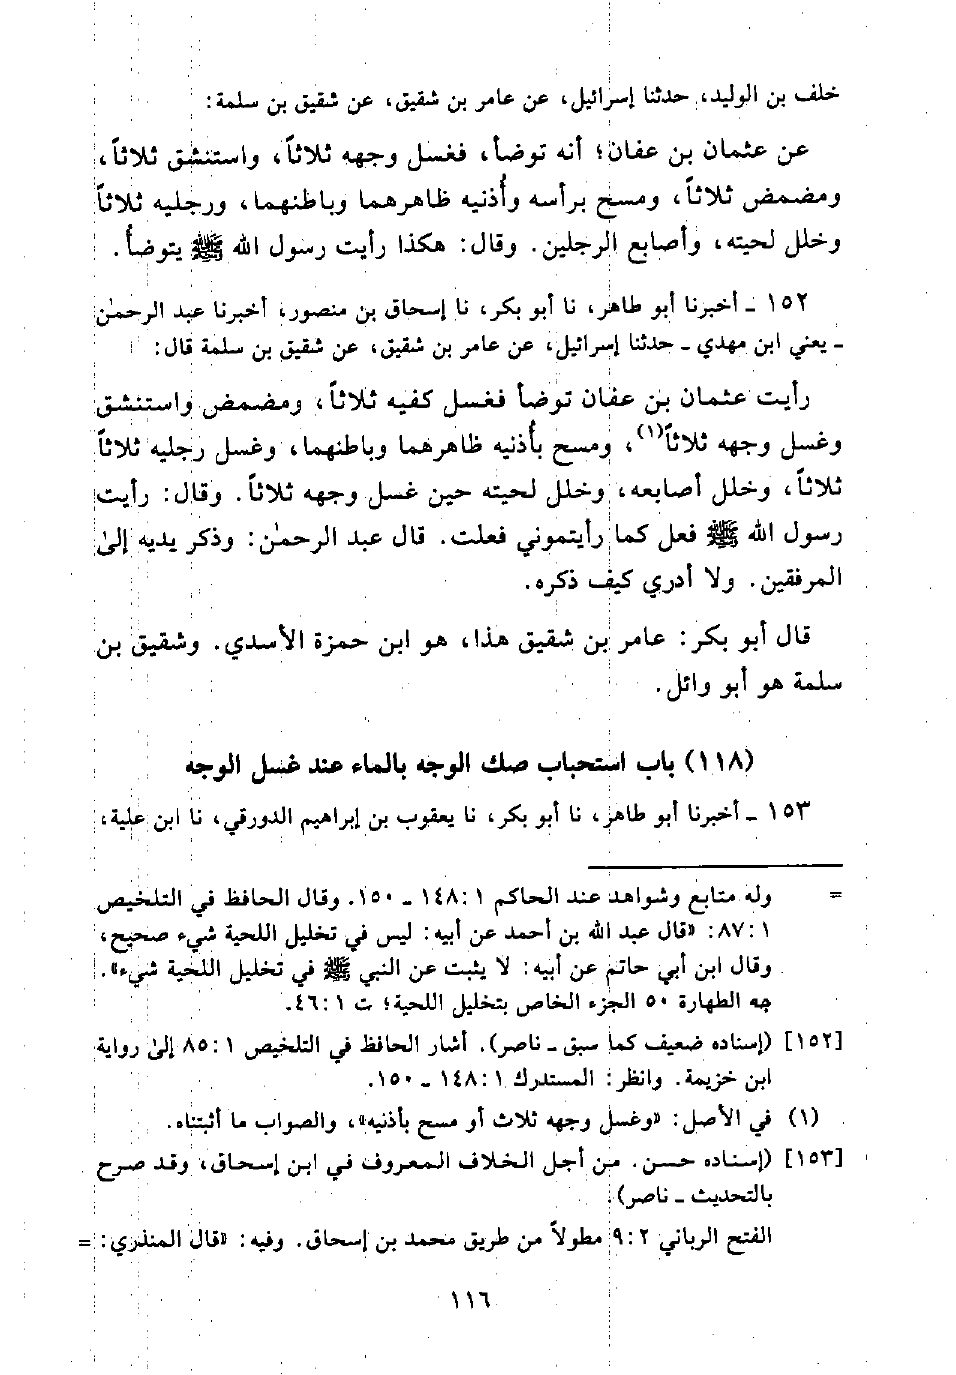 خلف بن الوليد، حدثنا إسرائيل، عن عامر بن شقيق، عن شقيق بن سلمة:
عن عثمان بن عفان؛ أنه توضأ، فغسل وجهه ثلاثاً، واستنشق ثلاثاً،
ومضمض ثلاثاً، ومسح برأسه وأُذنيه ظاهرهما وباطنهما، ورجليه ثلاثاً
وخلل لحيته، وأصابع الرجلين. وقال: هكذا رأيت رسول الله ﷺ يتوضأ.
١٥٢ ـ أخبرنا أبو طاهر، نا أبو بكر، نا إسحاق بن منصور، أخبرنا عبد الرحمٰن
ـ يعني ابن مهدي ـ حدثنا إسرائيل، عن عامر بن شقيق، عن شقيق بن سلمة قال:
رأيت عثمان بن عفان توضأ فغسل كفيه ثلاثاً، ومضمض واستنشق
وغسل وجهه ثلاثاً(١)، ومسح بأُذنيه ظاهرهما وباطنهما، وغسل رجليه ثلاثاً
ثلاثاً، وخلل أصابعه، وخلل لحيته حين غسل وجهه ثلاثاً. وقال: رأيت
رسول الله ﷺ فعل كما رأيتموني فعلت. قال عبد الرحمٰن: وذكر يديه إلىٰ
المرفقين. ولا أدري كيف ذكره.
قال أبو بكر: عامر بن شقيق هذا، هو ابن حمزة الأسدي. وشقيق بن
سلمة هو أبو وائل.
(١١٨) باب استحباب صك الوجه بالماء عند غسل الوجه
١٥٣ ـ أخبرنا أبو طاهر، نا أبو بكر، نا يعقوب بن إبراهيم الدورقي، نا ابن علية،
= وله متابع وشواهد عند الحاكم ١: ١٤٨ ـ ١٥٠. وقال الحافظ في التلخيص
١: ٨٧: «قال عبد الله بن أحمد عن أبيه: ليس في تخليل اللحية شيء صحيح،
وقال ابن أبي حاتم عن أبيه: لا يثبت عن النبي ﷺ في تخليل اللحية شيء».
جه الطهارة ٥٠ الجزء الخاص بتخليل اللحية؛ ت ١: ٤٦.
[١٥٢] (إسناده ضعيف كما سبق ـ ناصر). أشار الحافظ في التلخيص ١: ٨٥ إلىٰ رواية
ابن خزيمة. وانظر: المستدرك ١: ١٤٨ ـ ١٥٠.
(١) في الأصل: «وغسل وجهه ثلاث أو مسح بأذنيه»، والصواب ما أثبتناه.
[١٥٣] (إسناده حسن. من أجل الخلاف المعروف في ابن إسحاق، وقد صرح
بالتحديث ـ ناصر).
الفتح الرباني ٢: ٩ مطولاً من طريق محمد بن إسحاق. وفيه: «قال المنذري: =
١١٦